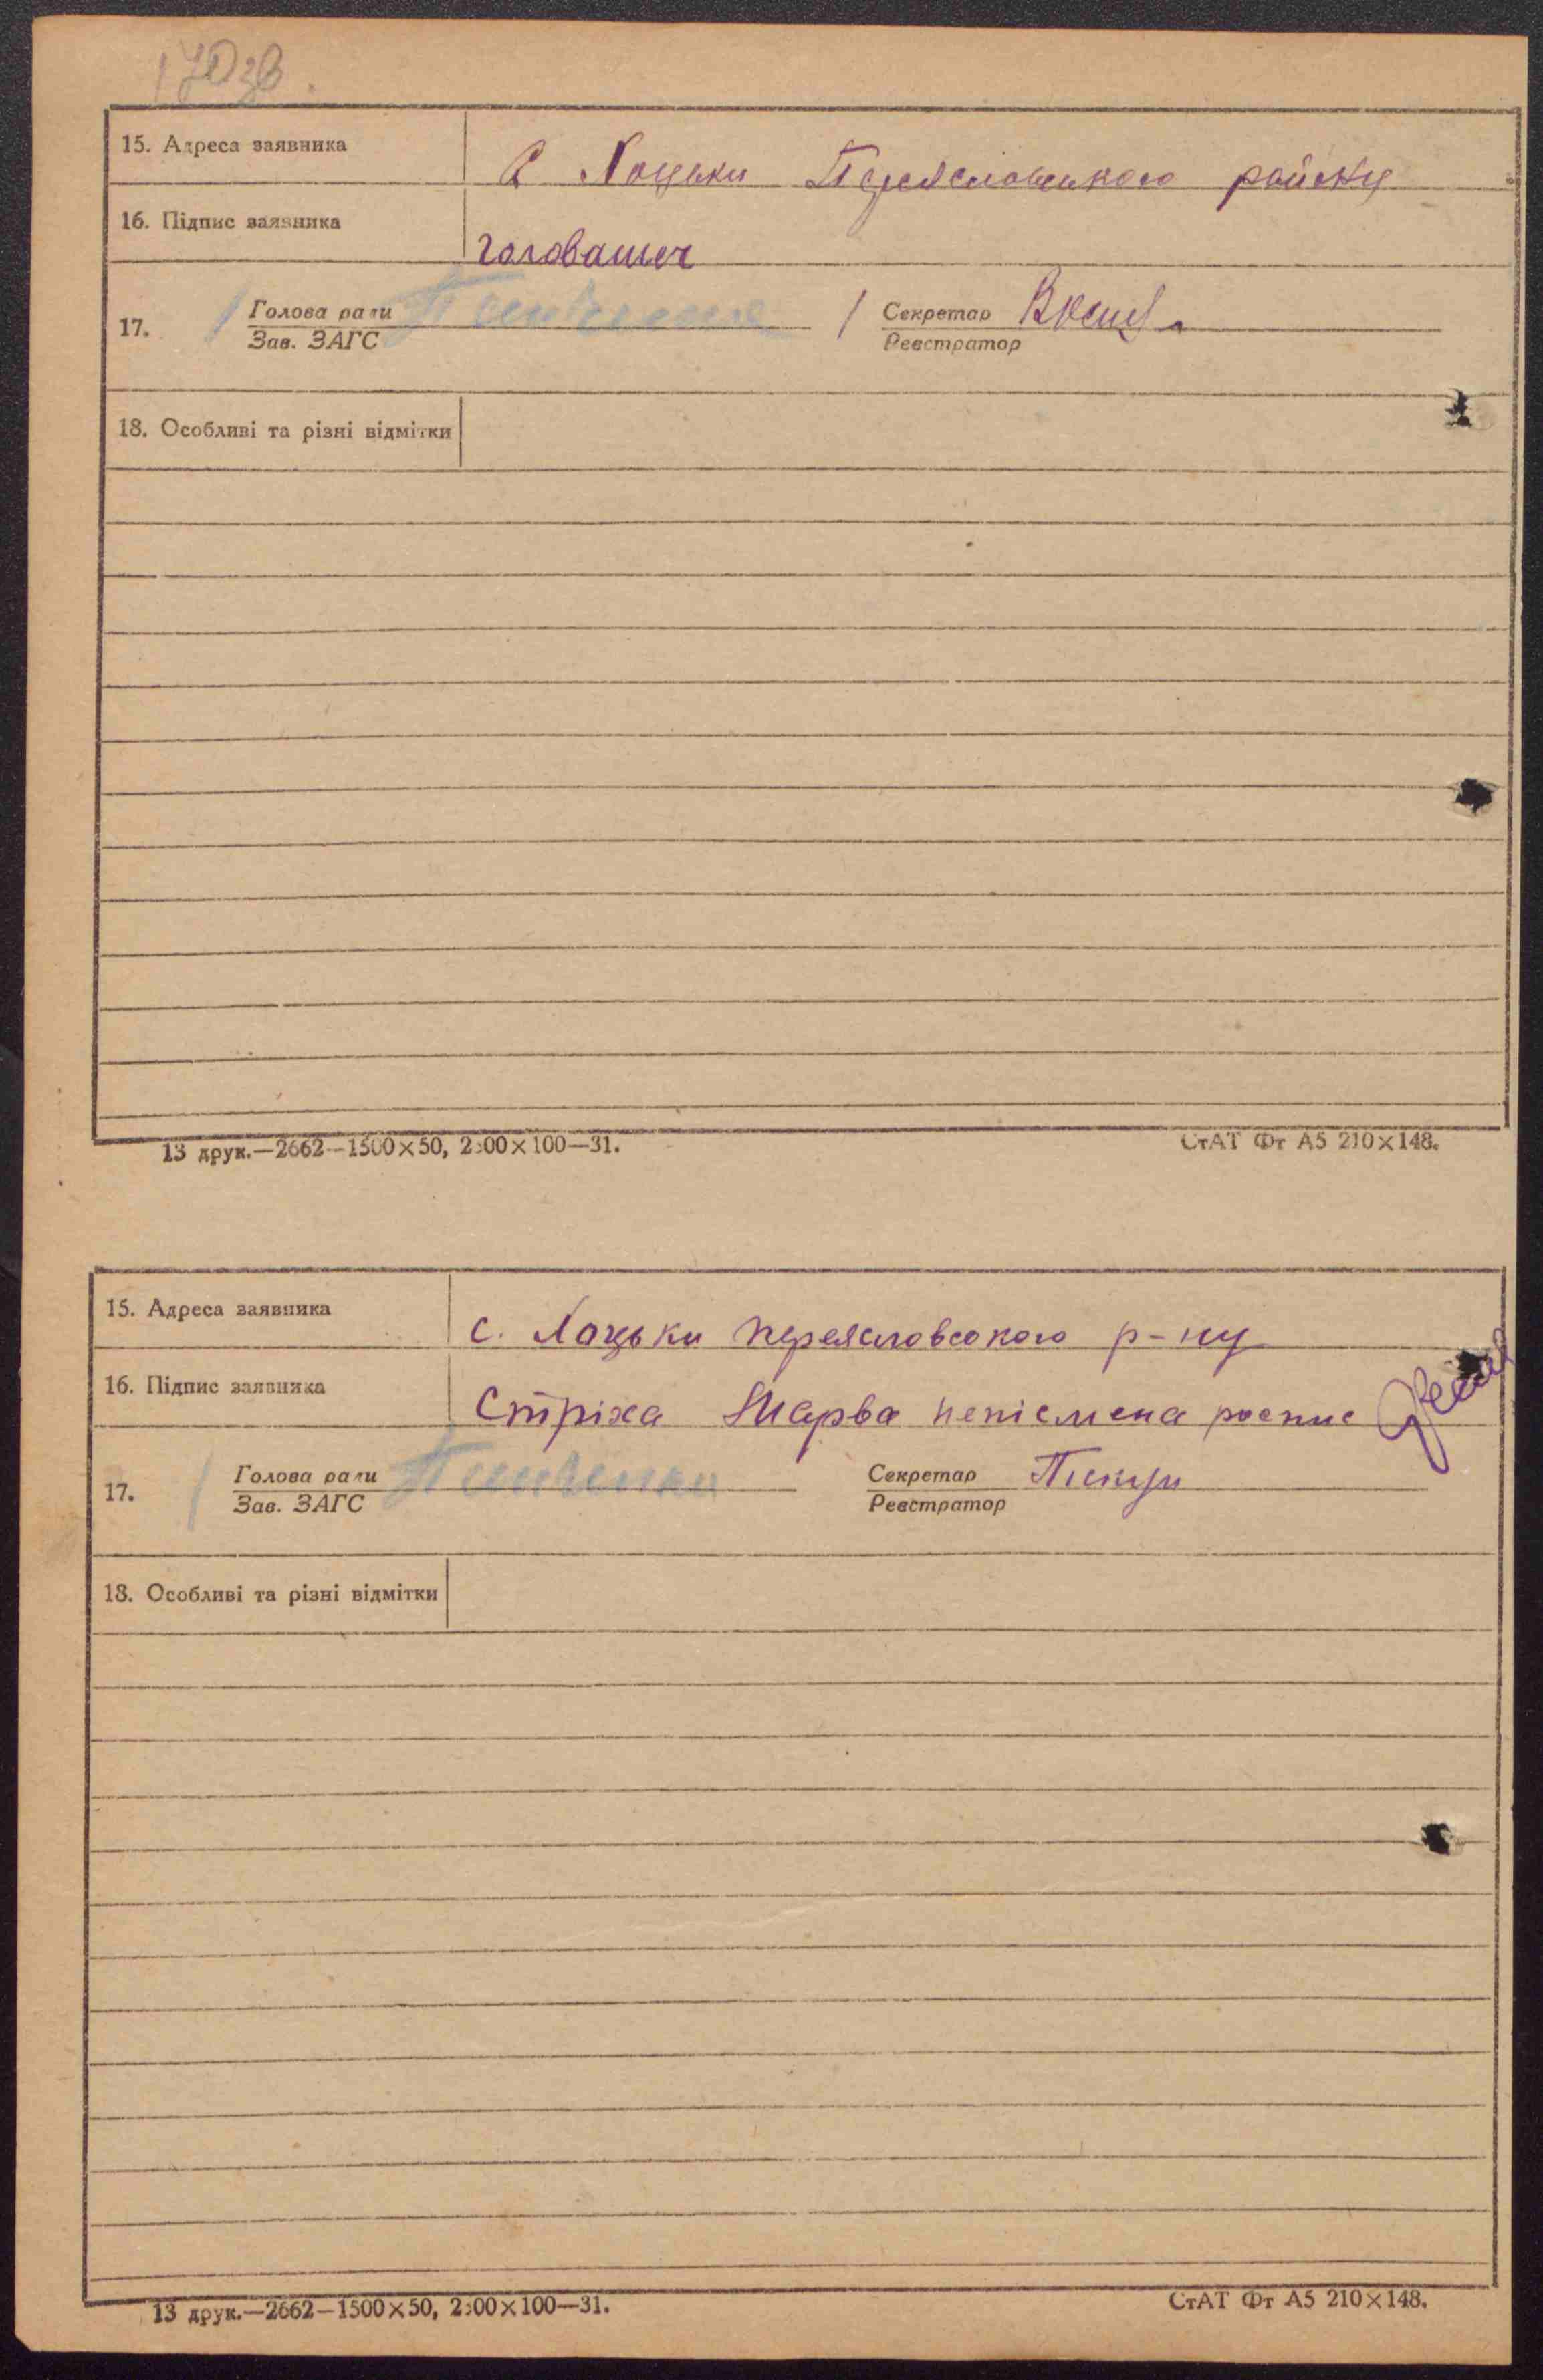 170зв.
15. Адреса заявника С Хоцьки Переяславського району
16. Підпис заявника Головашич
17. Голова ради Секретар
Зав. ЗАГС Реєстратор
18. Особливі та різні відмітки
13 друк.—2662—1500×50, 2500×100—31. СтАТ Фт А5 210×148.
15. Адреса заявника с. Хоцьки переясловсокого р-ну
16. Підпис заявника Стріха Марва непісмена роспис
17. Голова ради Секретар
Зав. ЗАГС Реєстратор
18. Особливі та різні відмітки
13 друк.—2662—1500×50, 2500×100—31. СтАТ Фт А5 210×148.